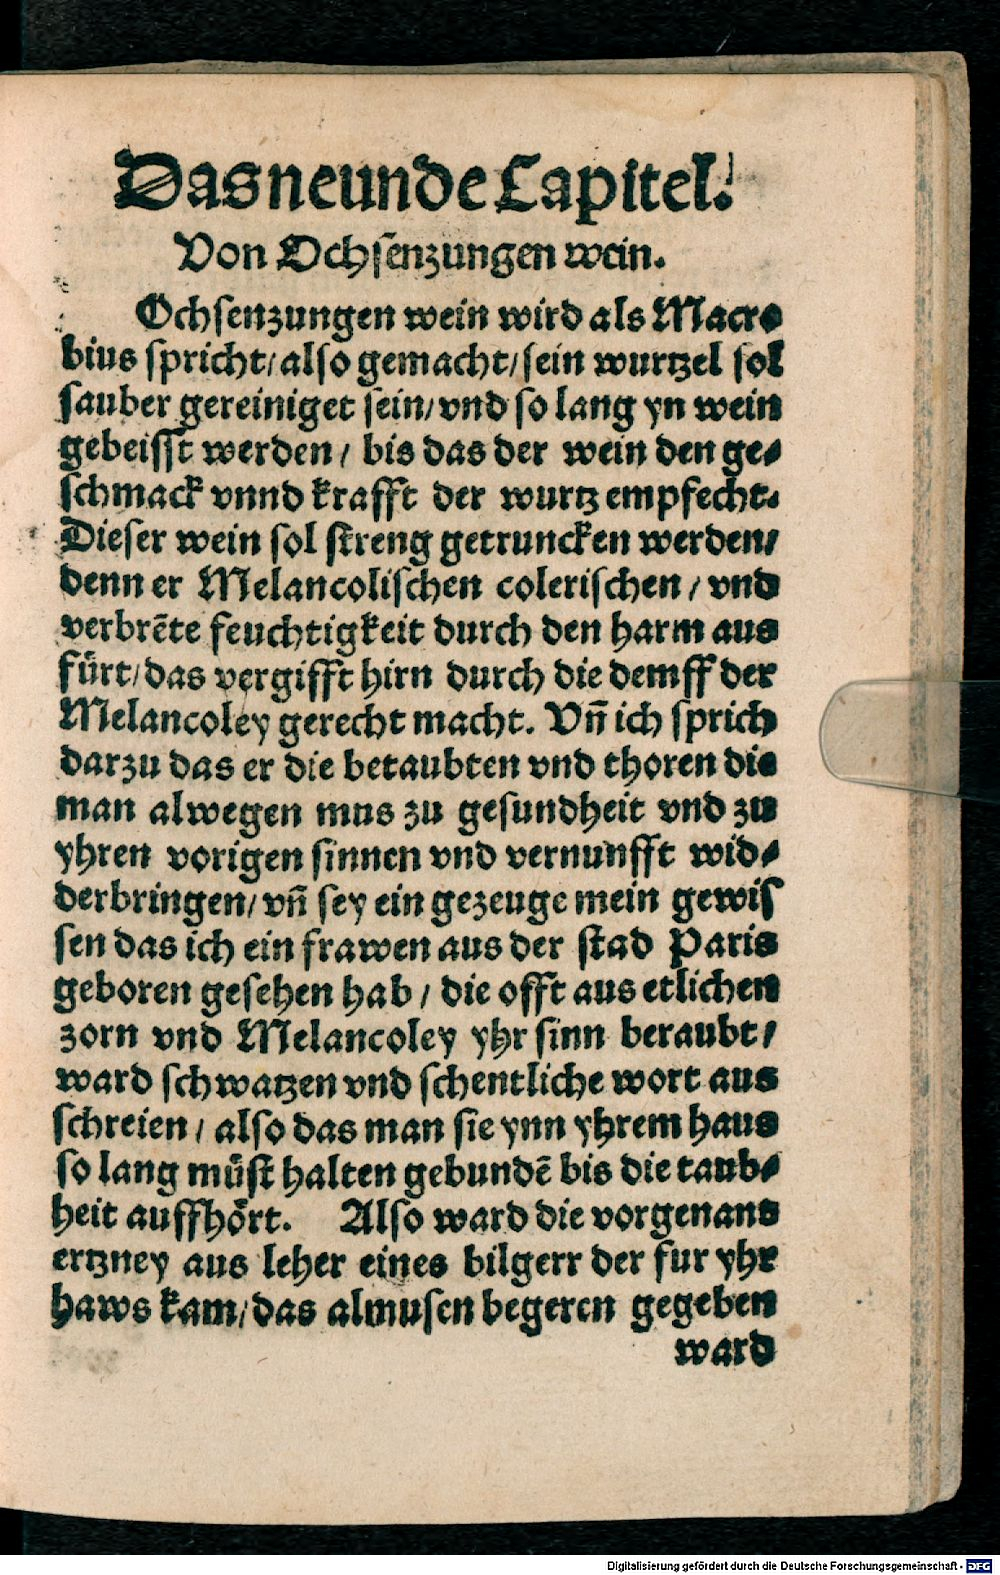 Das neunde Capitel.
Von Ochsenzungen wein.
Ochsenzungen wein wird als Macro
bius spricht/ also gemacht/ sein wurtzel sol
sauber gereiniget sein/ vnd so lang yn wein
gebeisst werden/ bis das der wein den ge⸗
schmack vnnd krafft der wurtz empfecht.
Dieser wein sol streng getruncken werden/
denn er Melancolischen colerischen/ vnd
verbrēte feuchtigkeit durch den harm aus
fürt/ das vergifft hirn durch die demff der
Melancoley gerecht macht. Vñ ich sprich
darzu das er die betaubten vnd thoren die
man alwegen mus zu gesundheit vnd zu
yhren vorigen sinnen vnd vernunfft wid⸗
derbringen/ vñ sey ein gezeuge mein gewis
sen das ich ein frawen aus der stad Paris
geboren gesehen hab/ die offt aus etlichen
zorn vnd Melancoley yhr sinn beraubt/
ward schwatzen vnd schentliche wort aus
schreien/ also das man sie ynn yhrem haus
so lang müst halten gebundē bis die taub⸗
heit auffhört. Also ward die vorgenand
ertzney aus leher eines bilgerr der fur yhr
haws kam/ das almusen begeren gegeben
ward
Digitalisierung gefördert durch die Deutsche Forschungsgemeinschaft - DFG